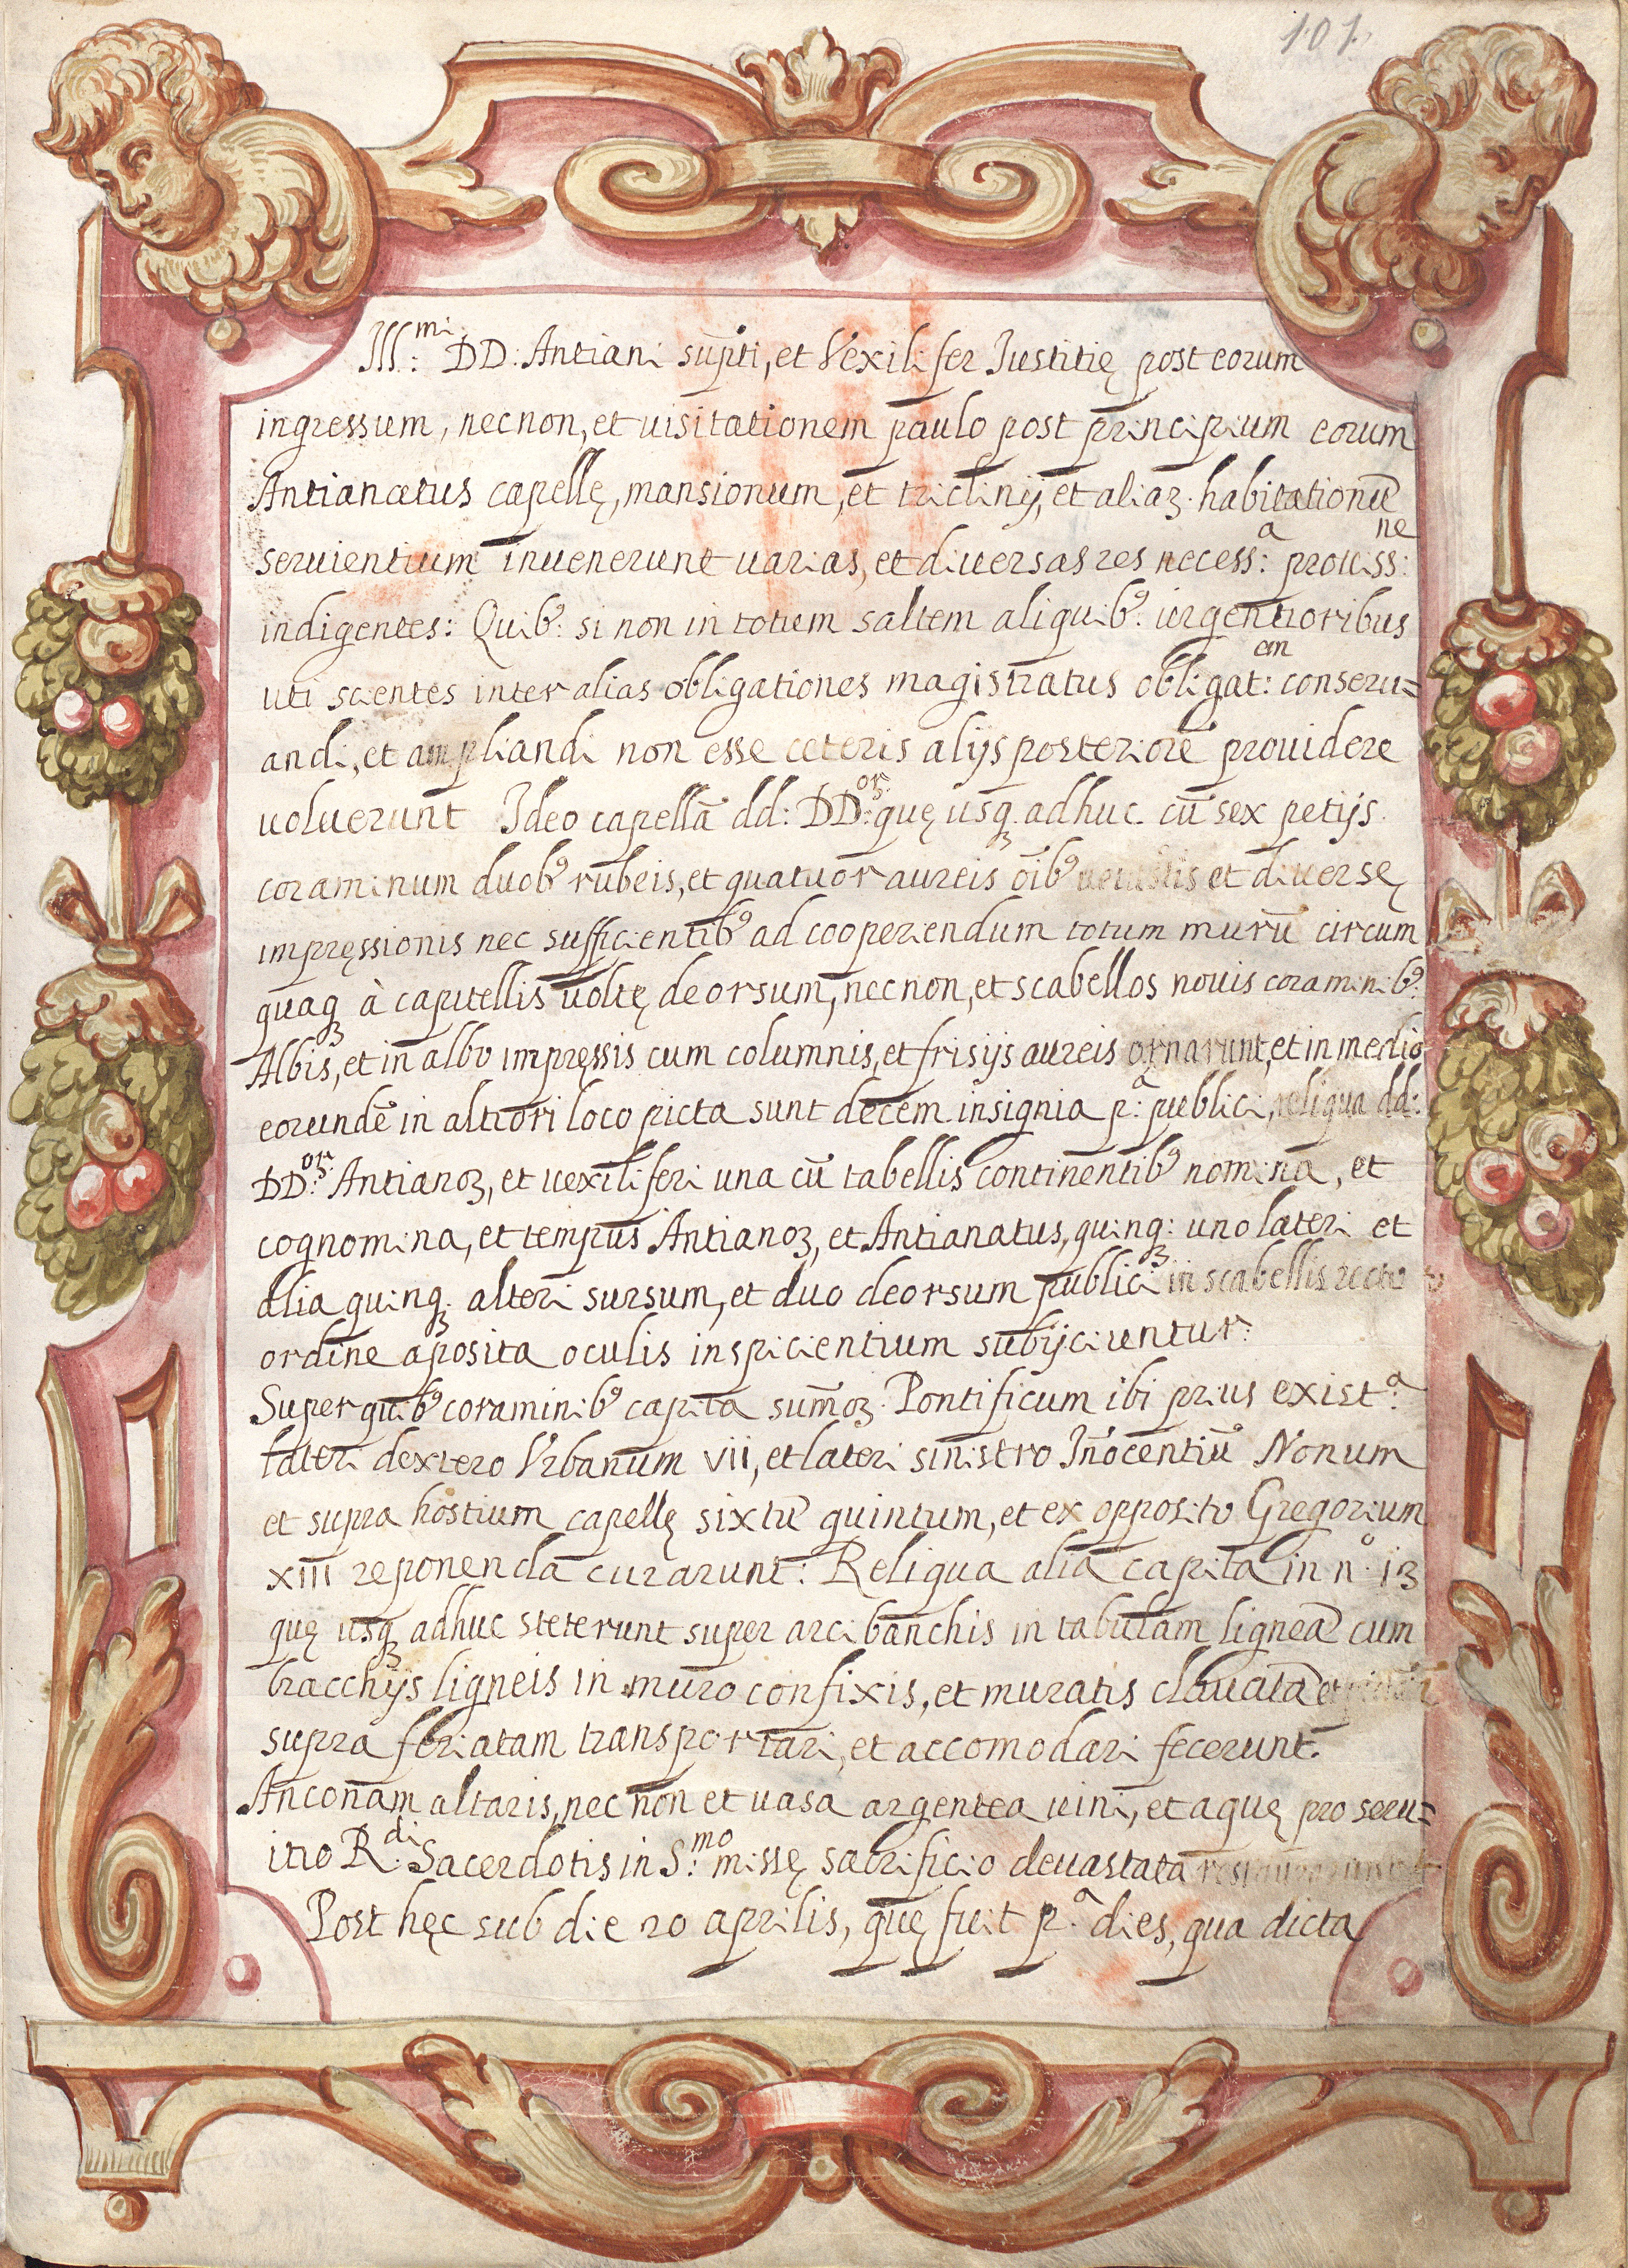 101.
Ill:mi DD: Antiani supti, et Vexilifer Iustitię post eorum
ingressum, necnon, et uisitationem paulo post principium eorum
Antianatus capellę, mansionum, et triclinij, et aliaꝝ habitationũ
seruientium inuenerunt uarias, et diuersas res necess:a prouiss:ne
indigentes: Quib9: si non in totum saltem aliquib9: urgentioribus
uti scientes inter alias obligationes magistratus obligat:am conseru=
andi, et ampliandi non esse ceteris alijs posteriorẽ prouidere
uoluerunt Ideo capellã dd: DD:orꝝ quę usqꝫ adhuc cũ sex petijs
coraminum duob9 rubeis, et quatuor aureis õib9 uetustis et diuersę
impręssionis nec sufficientib9 ad cooperiendum totum murũ circum
quaqꝫ à capitellis uoltę deorsum, necnon, et scabellos nouis coraminib9:
Albis, et in albo impręssis cum columnis, et frisijs aureis ornarunt, et in medio
eorundẽ in altiori loco picta sunt decem insignia p:a publici, reliqua dd:
DD:orꝝ Antianoꝝ, et uexiliferi una cũ tabellis continentib9 nomina, et
cognomina, et tempus Antianoꝝ, et Antianatus, quinqꝫ: uno lateri et
alia quinqꝫ alteri sursum, et duo deorsum publici in scabellis recto
ordine aposita oculis inspicientium subijciuntur:
Super quib9 coraminib9 capita sum̃oꝝ Pontificum ibi prius exist:a
lateri dextero Vrbanum vii, et lateri sinistro Iñocentiũ Nonum
et supra hostium capellę sixtũ quintum, et ex opposito Gregorium
xiii reponenda curarunt: Reliqua alia capita in n.o 13
quę usqꝫ adhuc steterunt super arcibanchis in tabulam ligneã cum
bracchijs ligneis in muro confixis, et muratis clauatã et
supra feriatam transportari, et accomodari fecerunt.
Anconam altaris, nec non et uasa argentea uini, et aquę pro seru=
itio R:di Sacerdotis in S:mo missę sacrificio deuastata
Post hęc sub die 20 aprilis, quę fuit p.a dies, qua dicta